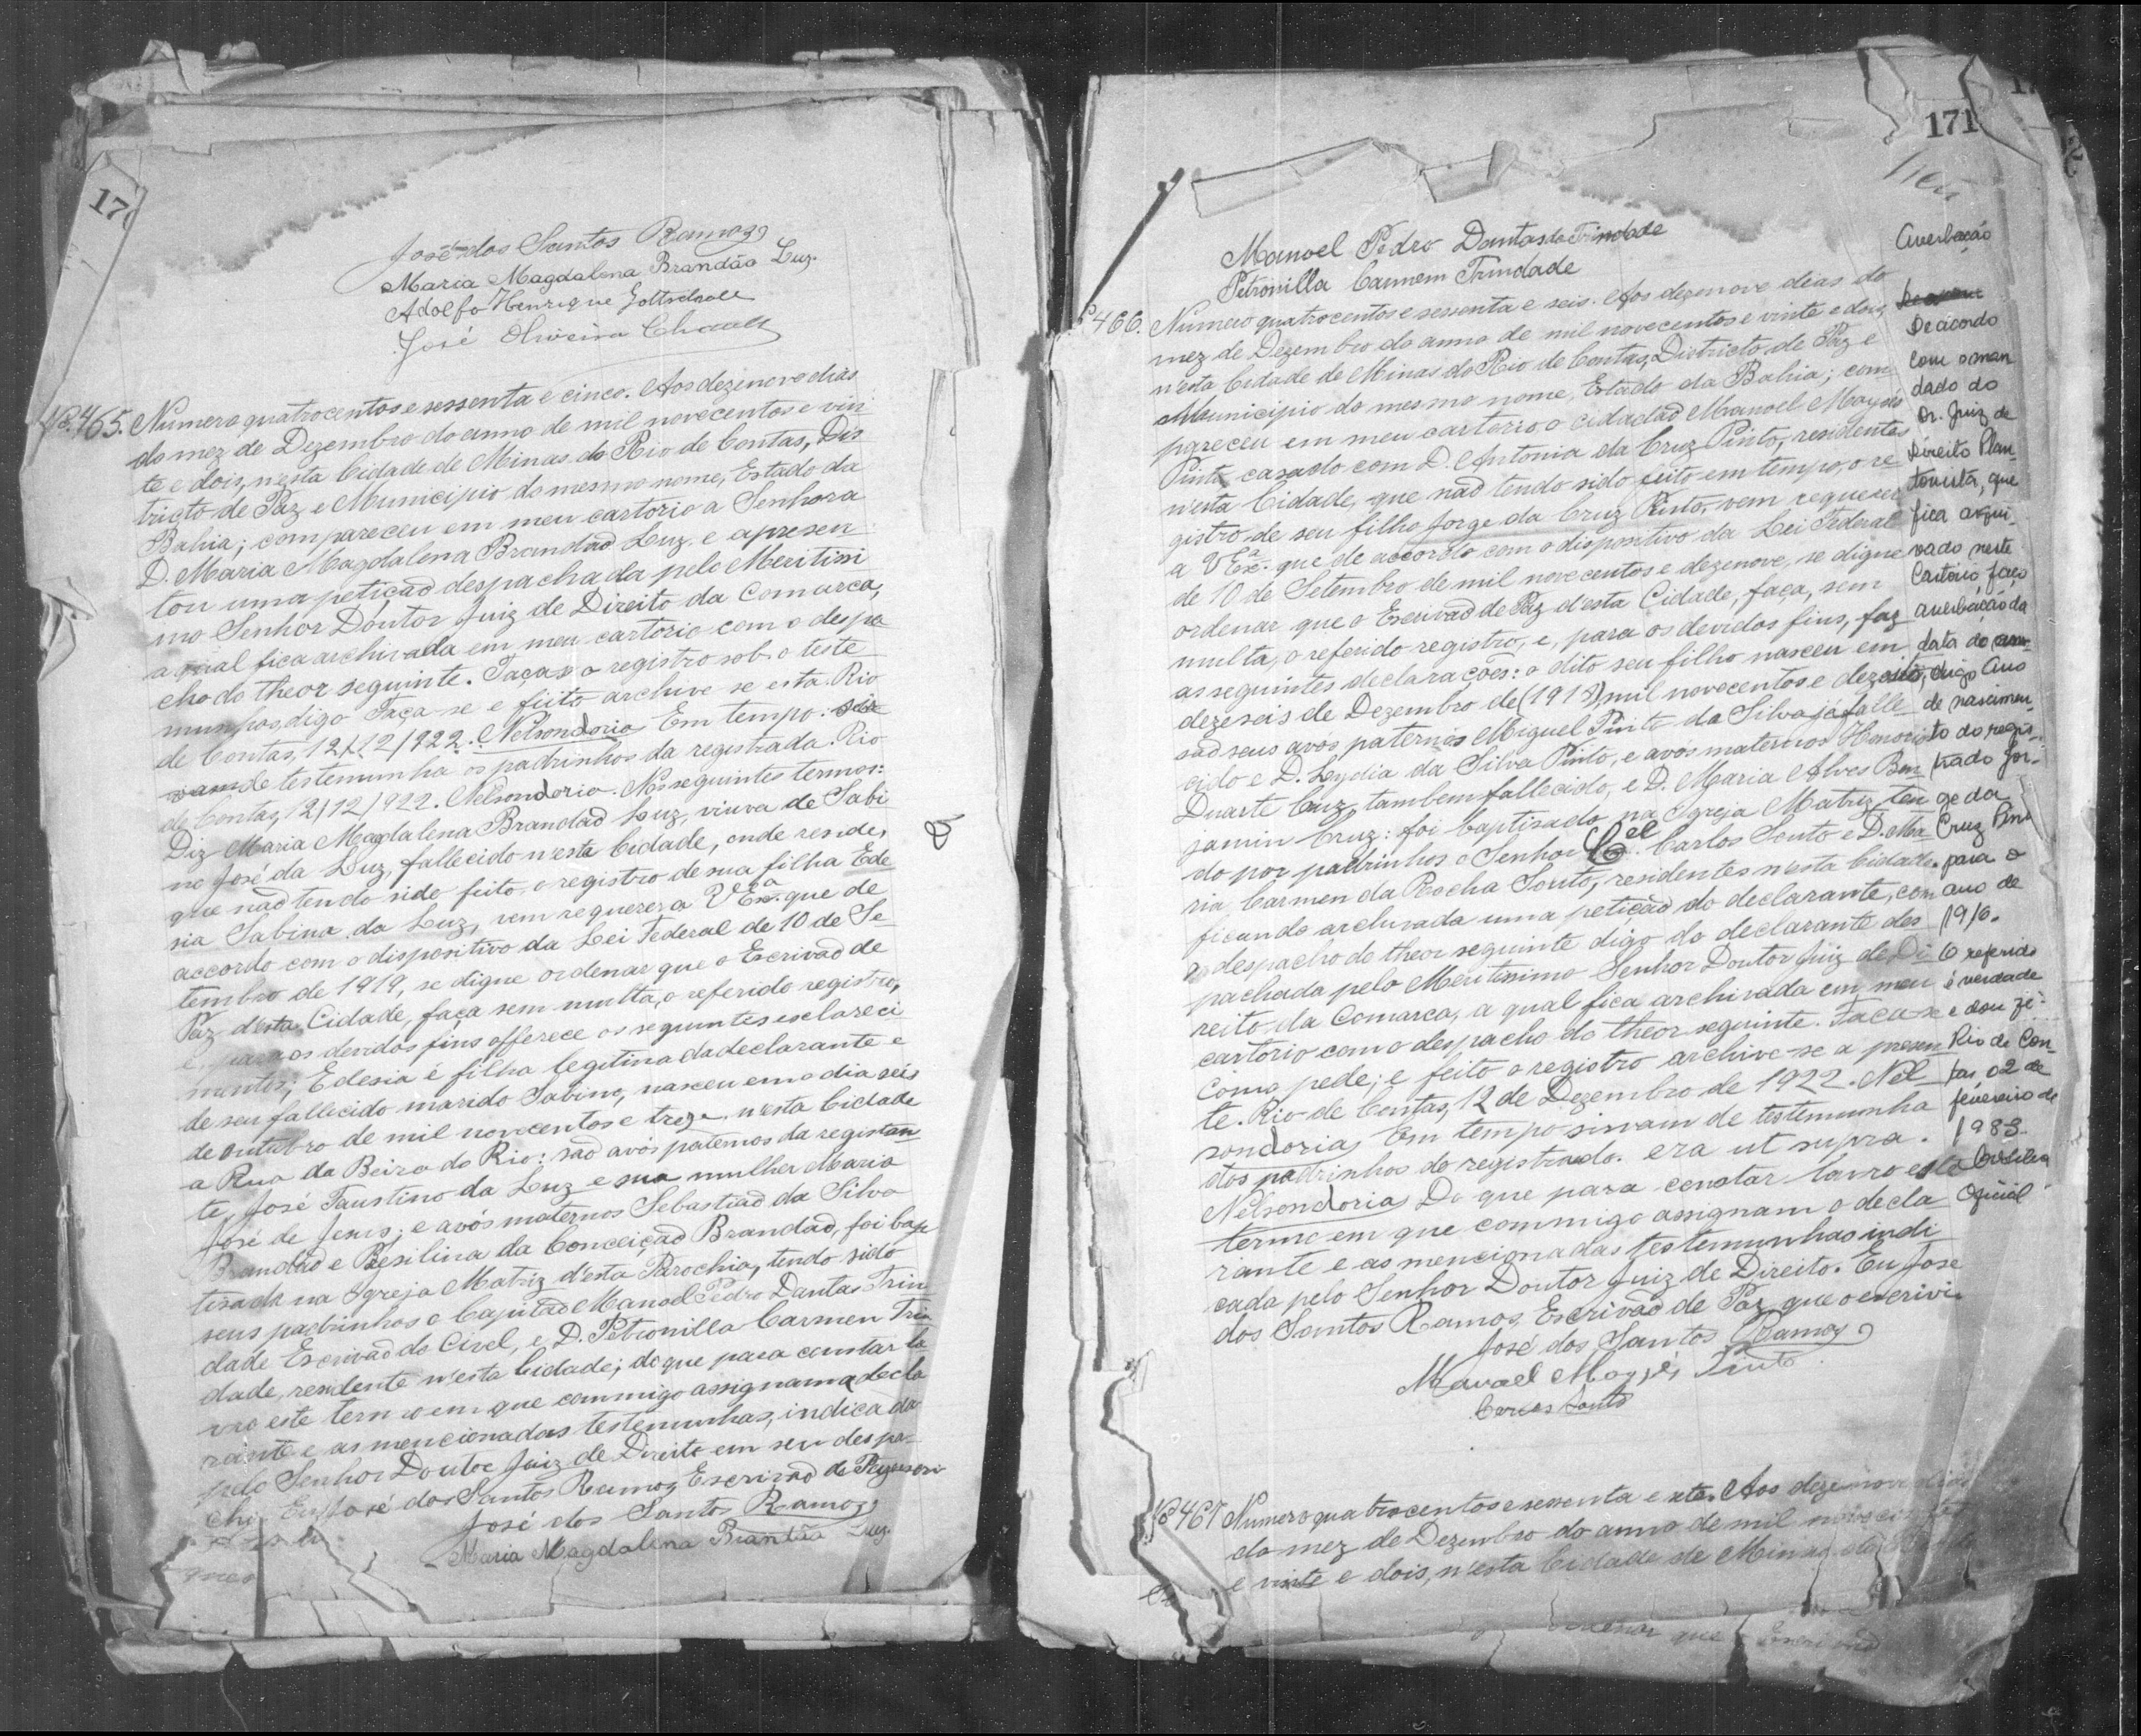 17
José dos Santos Ramos
Maria Magdalena Brandão Luz.
Adolfo Henrique Gottschall
José Oliveira
Nº 465. Numero quatrocentos e sessenta e cinco. Aos dezenove dias
do mez de Dezembro do anno de mil novecentos e vin
te e dois, n'esta Cidade de Minas do Rio de Contas, Dis
tricto de Paz e Municipio do mesmo nome, Estado da
Bahia; compareceu em meu cartorio a Senhora
D. Maria Magdalena Brandão Luz e apresen
tou uma petição despachada pelo Meritissi
mo Senhor Doutor Juiz de Direito da Comarca,
a qual fica archivada em meu cartorio com o despa
cho do theor seguinte. Faça-se o registro sob o teste
munhas, digo Faça-se e feito archive se esta. Rio
de Contas, 12/12/922. Nelsondoria Em tempo: sir
vam de testemunha os padrinhos da registrada. Rio
de Contas, 12/12/922. Nelsondoria. Nos seguintes termos:
Diz Maria Magdalena Brandão Luz, viuva de Sabi
no José da Luz, fallecido n'esta Cidade, onde reside,
que não tendo sido feito o registro de sua filha Ede
sia Sabina da Luz, vem requerer a V Exª. que de
accordo com o dispositivo da Lei Federal de 10 de Se
tembro de 1919, se digne ordenar que o Escrivão de
Paz d'esta Cidade, faça sem multa, o referido registro,
e, para os devidos fins offerece os seguintes esclareci
mentos; Edesia é filha legitima da declarante e
de seu fallecido marido Sabino, nasceu em o dia seis
de outubro de mil novecentos e treze n'esta Cidade
a Rua da Beira do Rio: são avós paternos da registran
te, José Faustino da Luz e sua mulher Maria
José de Jesus; e avós maternos Sebastião da Silva
Brandão e Besilina da Conceição Brandão, foi bap
tisada na Igreja Matriz d'esta Parochia, tendo sido
seus padrinhos o Capitão Manoel Pedro Dantas Trin
dade Escrivão do Civel, e D. Petronilla Carmen Trin
dade, residente n'esta Cidade; do que para constar la
vro este termo em que commigo assignam a decla
rante e as mencionadas testemunhas, indicada
pelo Senhor Doutor Juiz de Direito em seu despa
cho. Eu José dos Santos Ramos Escrivão de Paz
José dos Santos Ramos
Maria Magdalena Brandão Luz.
171
Manoel Pedro Dantas da Trindade
Petronilla Carmem Trindade
Nº 466. Numero quatrocentos e sessenta e seis. Aos dezenove dias do
mez de Dezembro do anno de mil novecentos e vinte e dois,
n'esta Cidade de Minas do Rio de Contas, Districto de Paz e
Municipio do mesmo nome, Estado da Bahia; com
pareceu em meu cartorio o cidadão Manoel Moysés
Pinto, casado com D. Antonia da Cruz Pinto, residentes
n'esta Cidade, que não tendo sido feito em tempo, o re
gistro de seu filho Jorge da Cruz Pinto, vem requerer
a V Exª. que de accordo com o dispositivo da Lei Federal
de 10 de Setembro de mil novecentos e dezenove, se digne
ordenar que o Escrivão de Paz d'esta Cidade, faça, sem
multa, o referido registro, e, para os devidos fins, faz
as seguintes declarações: o dito seu filho nasceu em
dezeseis de Dezembro de (1918), mil novecentos e dezoito,
são seus avós paternos Miguel Pinto da Silva já falle
cido e D. Lydia da Silva Pinto, e avós maternos Honorio
Duarte Cruz, tambem fallecido, e D. Maria Alves Ben
jamin Cruz: foi baptisado na Igreja Matriz, ten
do por padrinhos o Senhor Cel. Carlos Souto e D. Ma
ria Carmen da Rocha Souto, residentes n'esta Cidade.
ficando archivada uma petição do declarante, com
o despacho do theor seguinte digo do declarante des
pachada pelo Meritissimo Senhor Doutor Juiz de Di
reito da Comarca, a qual fica archivada em meu
cartorio com o despacho do theor seguinte. Faça-se
como pede; e feito o registro archive-se a presen
te. Rio de Contas, 12 de Dezembro de 1922. Nel
sondoria, Em tempo sirvam de testemunha
dos padrinhos do registrado. era ut supra.
Nelsondoria Do que para constar lavro este
termo em que commigo assignam o decla
rante e as mencionadas testemunhas indi
cada pelo Senhor Doutor Juiz de Direito. Eu José
dos Santos Ramos, Escrivão de Paz, que o escrivi.
José dos Santos Ramos
Manoel Moysés Pinto
Carlos Souto
Averbação
De acordo
com o man
dado do
Dr. Juiz de
Direito Plan
tonista, que
fica arqui
vado neste
Cartório faço
averbação da
data do
digo Ano
de nascimen
to do regis
trado Jor
ge da
Cruz Pin
para o
ano de
1916.
O referido
é verdade
e dou fé.
Rio de Con
tas 02 de
fevereiro de
1983
Oficial
Nº 467 Numero quatrocentos e sessenta e sete. Aos dezenove dias
do mez de Dezembro do anno de mil novecentos
e vinte e dois, n'esta Cidade de Minas do
ordenar que o Escrivão